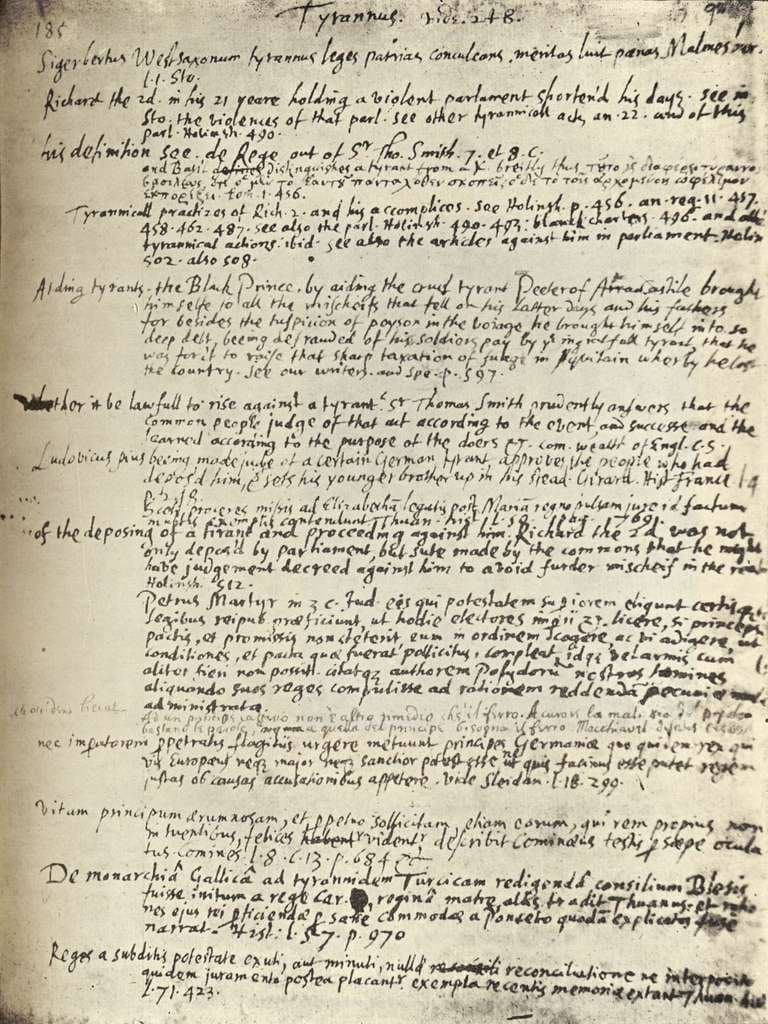 185
Tyrannus. vide. 248.
Sigerbertus Westsaxonum tyrannus leges patrias conculcans, meritas luit pœnas. Malmesbur.
l. 1. Sto.
Richard the 2d. in his 21 yeare holding a violent parlament shorten'd his days. see in
Sto. the violences of that parl. see other tyrannicall acts an. 22. and of this
parl. Holinsh. 490.
his definition see. de Rege. out of Sr Tho. Smith. 7. et 8. C.
and Basil distinguishes a tyrant from a K. breifly thus τοῦτο γὰρ διαφέρει τύραννος
βασιλέως, ὅτι ὁ μὲν τὸ ἑαυτοῦ πανταχόθεν σκοπεῖ, ὁ δὲ τὸ τοῖς ἀρχομένοις ὠφέλιμον
ἐκπορίζει. tom. 1. 456.
Tyrannicall practizes of Rich. 2. and his accomplices. see Holinsh. p. 456. an. reg. 11. 457.
458. 462. 487. see also the parl. Holinsh. 490. 493: blanck charters. 496. and othe
tyrannical actions. ibid. see also the articles against him in parlament. Holin
502. also 508.
Aiding tyrants. the Black Prince. by aiding the cruel tyrant Peeter of Castile brough
himselfe to all the mischeifs that fell on his latter days and his fathers
for besides the suspicion of poyson in the voiage he brought himself into so
deep debt, beeing defrauded of his soldiers pay by ye ingratefull tyrant, that he
was forc't to raise that sharp taxation of fuage in Aquitain wherby he lost
the country. see our writers. and Spe. p. 597.
Whether it be lawfull to rise against a tyrant? Sr Thomas Smith prudently answers that the
common people judge of that act according to the event, and successe. and the
learned according to the purpose of the doers &c. com. wealth of Engl. C. 5.
Ludovicus pius beeing made judge of a certain German tyrant, approves the people who had
depos'd him, & sets his younger brother up in his stead. Girard. Hist. France l 4
Scoti proceres missis ad Elizabetham legatis post Mariam regno pulsam jure id factum
exemplis contendunt Thuan. hist. l. 50. pag. 769.
of the deposing of a tirant and proceeding against him. Richard the 2d. was not
only depos'd by parlament, but sute made by the commons that he might
have judgement decreed against him to avoid furder mischeif in the rea
Holinsh. 512.
Petrus Martyr in 3 c. Jud. eis qui potestatem superiorem eligunt certisq
legibus reipub. præficiunt, ut hodie electores imperii &c. licere, si princeps
pactis, et promissis non steterit, eum in ordinem cogere, ac vi adigere, ut
conditiones, et pacta quæ fuerat pollicitus, compleat, idq. vel armis cum
aliter fieri non possit. citatq. authorem Polydorum nostros homines
aliquando suos reges compulisse ad rationem reddendam pecuniæ male
administratæ.
occidere liceat
Ad un principe cattivo non è altro rimedio che il ferro. A curare la malattia del popolo
bastano le parole, a quella del principe bisogna il ferro. Macchiavel
nec imperatorem perpetratis flagitiis urgere metuunt principes Germaniæ quo quidem rex qui
vis Europæus neq. major neq. sanctior potest esse, ut quis facinus esse putet regem
justas ob causas accusationibus appetere. vide Sleidan. l. 18. 299.
Vitam principum ærumnosam, et perpetuo sollicitam, etiam eorum, qui rem propius non
intuentibus, felices videntr describit Cominæus testis persæpe ocula
tus. comines. l. 8. c. 13. p. 684 &c
De monarchia Gallica ad tyrannidem Turcicam redigenda consilium Blesis
fuisse initum a rege Car. , regina matre, aliis tradit Thuanus: et ratio
nes ejus rei perficiendæ sane commodæ a Ponceto quodam explicatas fuse
narrat. Hist: l. 57. p. 970
Reges a subditis potestate exuti, aut minuti, nulla reconciliatione ne interposito
quidem juramento postea placantr. exempla recentis memoriæ extant. Thuan.
l. 71. 423.